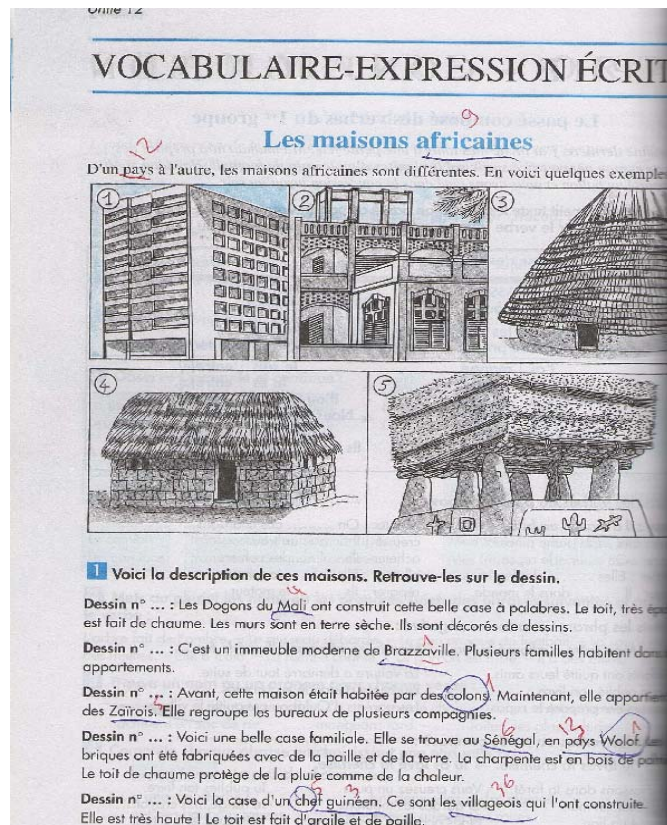 Unité 12
VOCABULAIRE-EXPRESSION ÉCRIT
9
Les maisons africaines
12
D'un pays à l'autre, les maisons africaines sont différentes. En voici quelques exemple
1 2 3
4 5
1 Voici la description de ces maisons. Retrouve-les sur le dessin.
Dessin n° ... : Les Dogons du Mali ont construit cette belle case à palabres. Le toit, très
est fait de chaume. Les murs sont en terre sèche. Ils sont décorés de dessins.
Dessin n° ... : C'est un immeuble moderne de Brazzaville. Plusieurs familles habitent dans
appartements.
Dessin n° ... : Avant, cette maison était habitée par des colons. Maintenant, elle appartie
des Zaïrois. Elle regroupe les bureaux de plusieurs compagnies.
Dessin n° ... : Voici une belle case familiale. Elle se trouve au Sénégal, en pays Wolof. Les
briques ont été fabriquées avec de la paille et de la terre. La charpente est en bois de
Le toit de chaume protège de la pluie comme de la chaleur.
Dessin n° ... : Voici la case d'un chef guinéen. Ce sont les villageois qui l'ont construite.
Elle est très haute ! Le toit est fait d'argile et de paille.